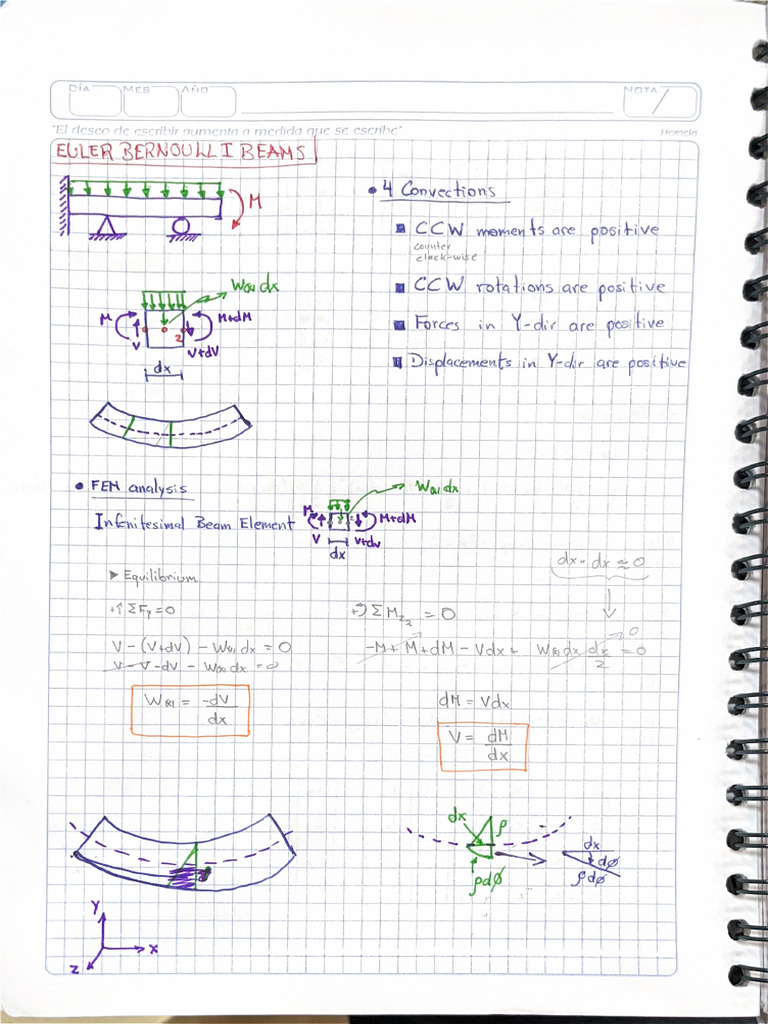 DÍA MES AÑO NOTA
"El deseo de escribir aumenta a medida que se escribe"
EULER BERNOULLI BEAMS
M
• 4 Convections
■ CCW moments are positive
counter
clock-wise
■ CCW rotations are positive
■ Forces in Y-dir are positive
■ Displacements in Y-dir are positive
W(x) dx
M M+dM
V 2 V+dV
dx
• FEM analysis
Infinitesimal Beam Element
W(x) dx
M M+dM
V V+dV
dx
dx · dx ≈ 0
➤ Equilibrium
+↑ ΣFy = 0
V - (V+dV) - W(x) dx = 0
V - V - dV - W(x) dx = 0
W(x) = -dV/dx
+↺ ΣMz₂ = 0
-M + M + dM - Vdx + W(x) dx dx/2 = 0
0
dM = Vdx
V = dM/dx
dx ρ
ρdϕ
dx
dϕ
ρdϕ
Y
X
Z